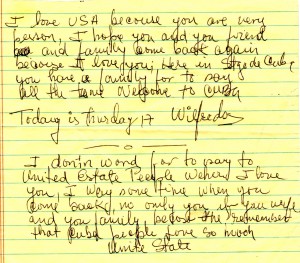 I love USA because you are very
person, I hope you and you friend
and family come back again
because I love you, here in
you have a family for to say
all the time Welcome to Cuba
Today is thursday 17 Wilfredo
I don't word for to say to
United Estate People when I love
you, I say some time when you
come back, no only you if you wife
and you family, because the remember
that Cuba people love so much
Unite State